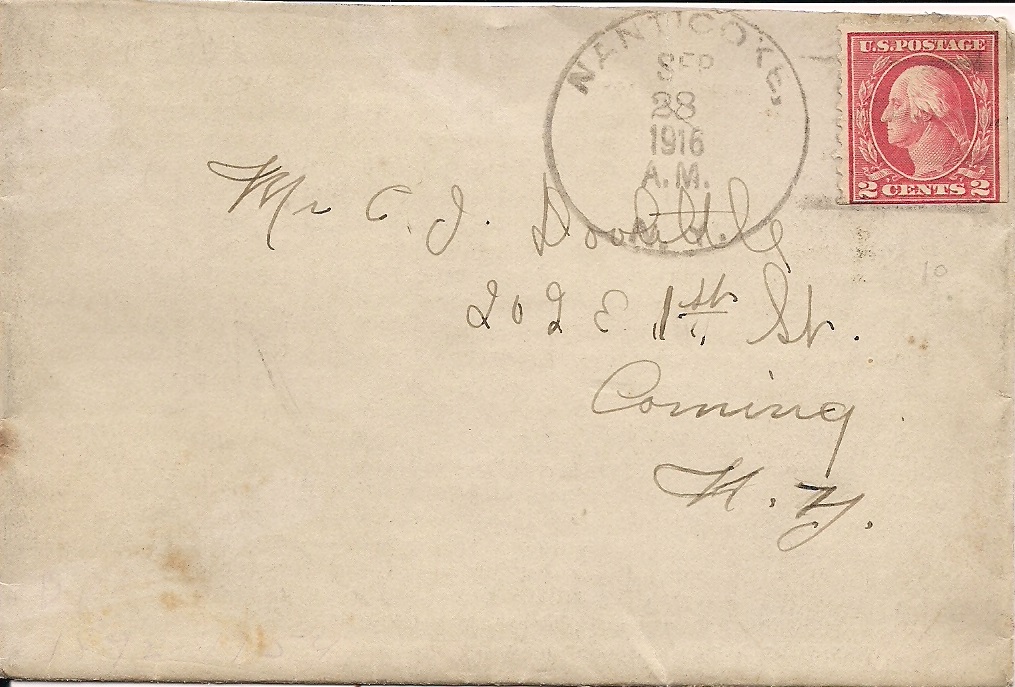 NANTICOKE,
SEP
28
1916
A.M.
U.S.POSTAGE
2 CENTS 2
Mr C. J. Doolittle
202 E 1st St.
Corning
N.Y.
10